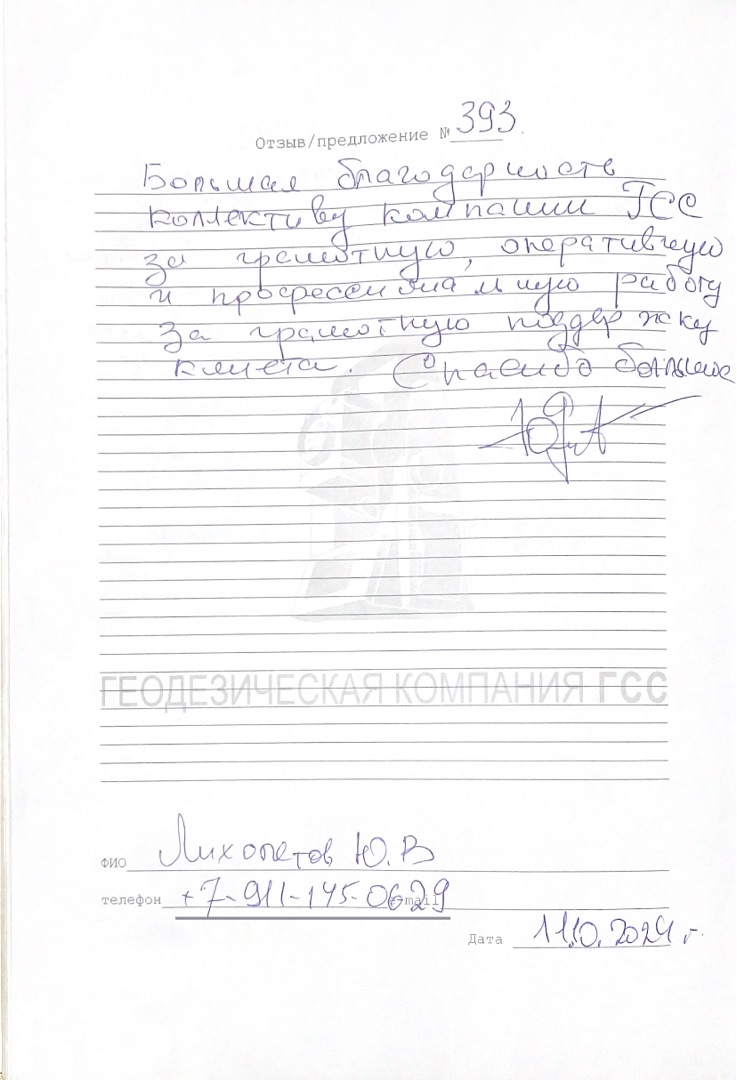 Отзыв/предложение № 393.
Большая благодарность
коллективу компании ГСС
за грамотную, оперативную
и профессиональную работу
за грамотную поддержку
клиета. Спасибо большое
ГЕОДЕЗИЧЕСКАЯ КОМПАНИЯ ГСС
ФИО Лихолетов Ю.В
телефон +7-911-145-0629 e-mail
Дата 11.10.2024 г.